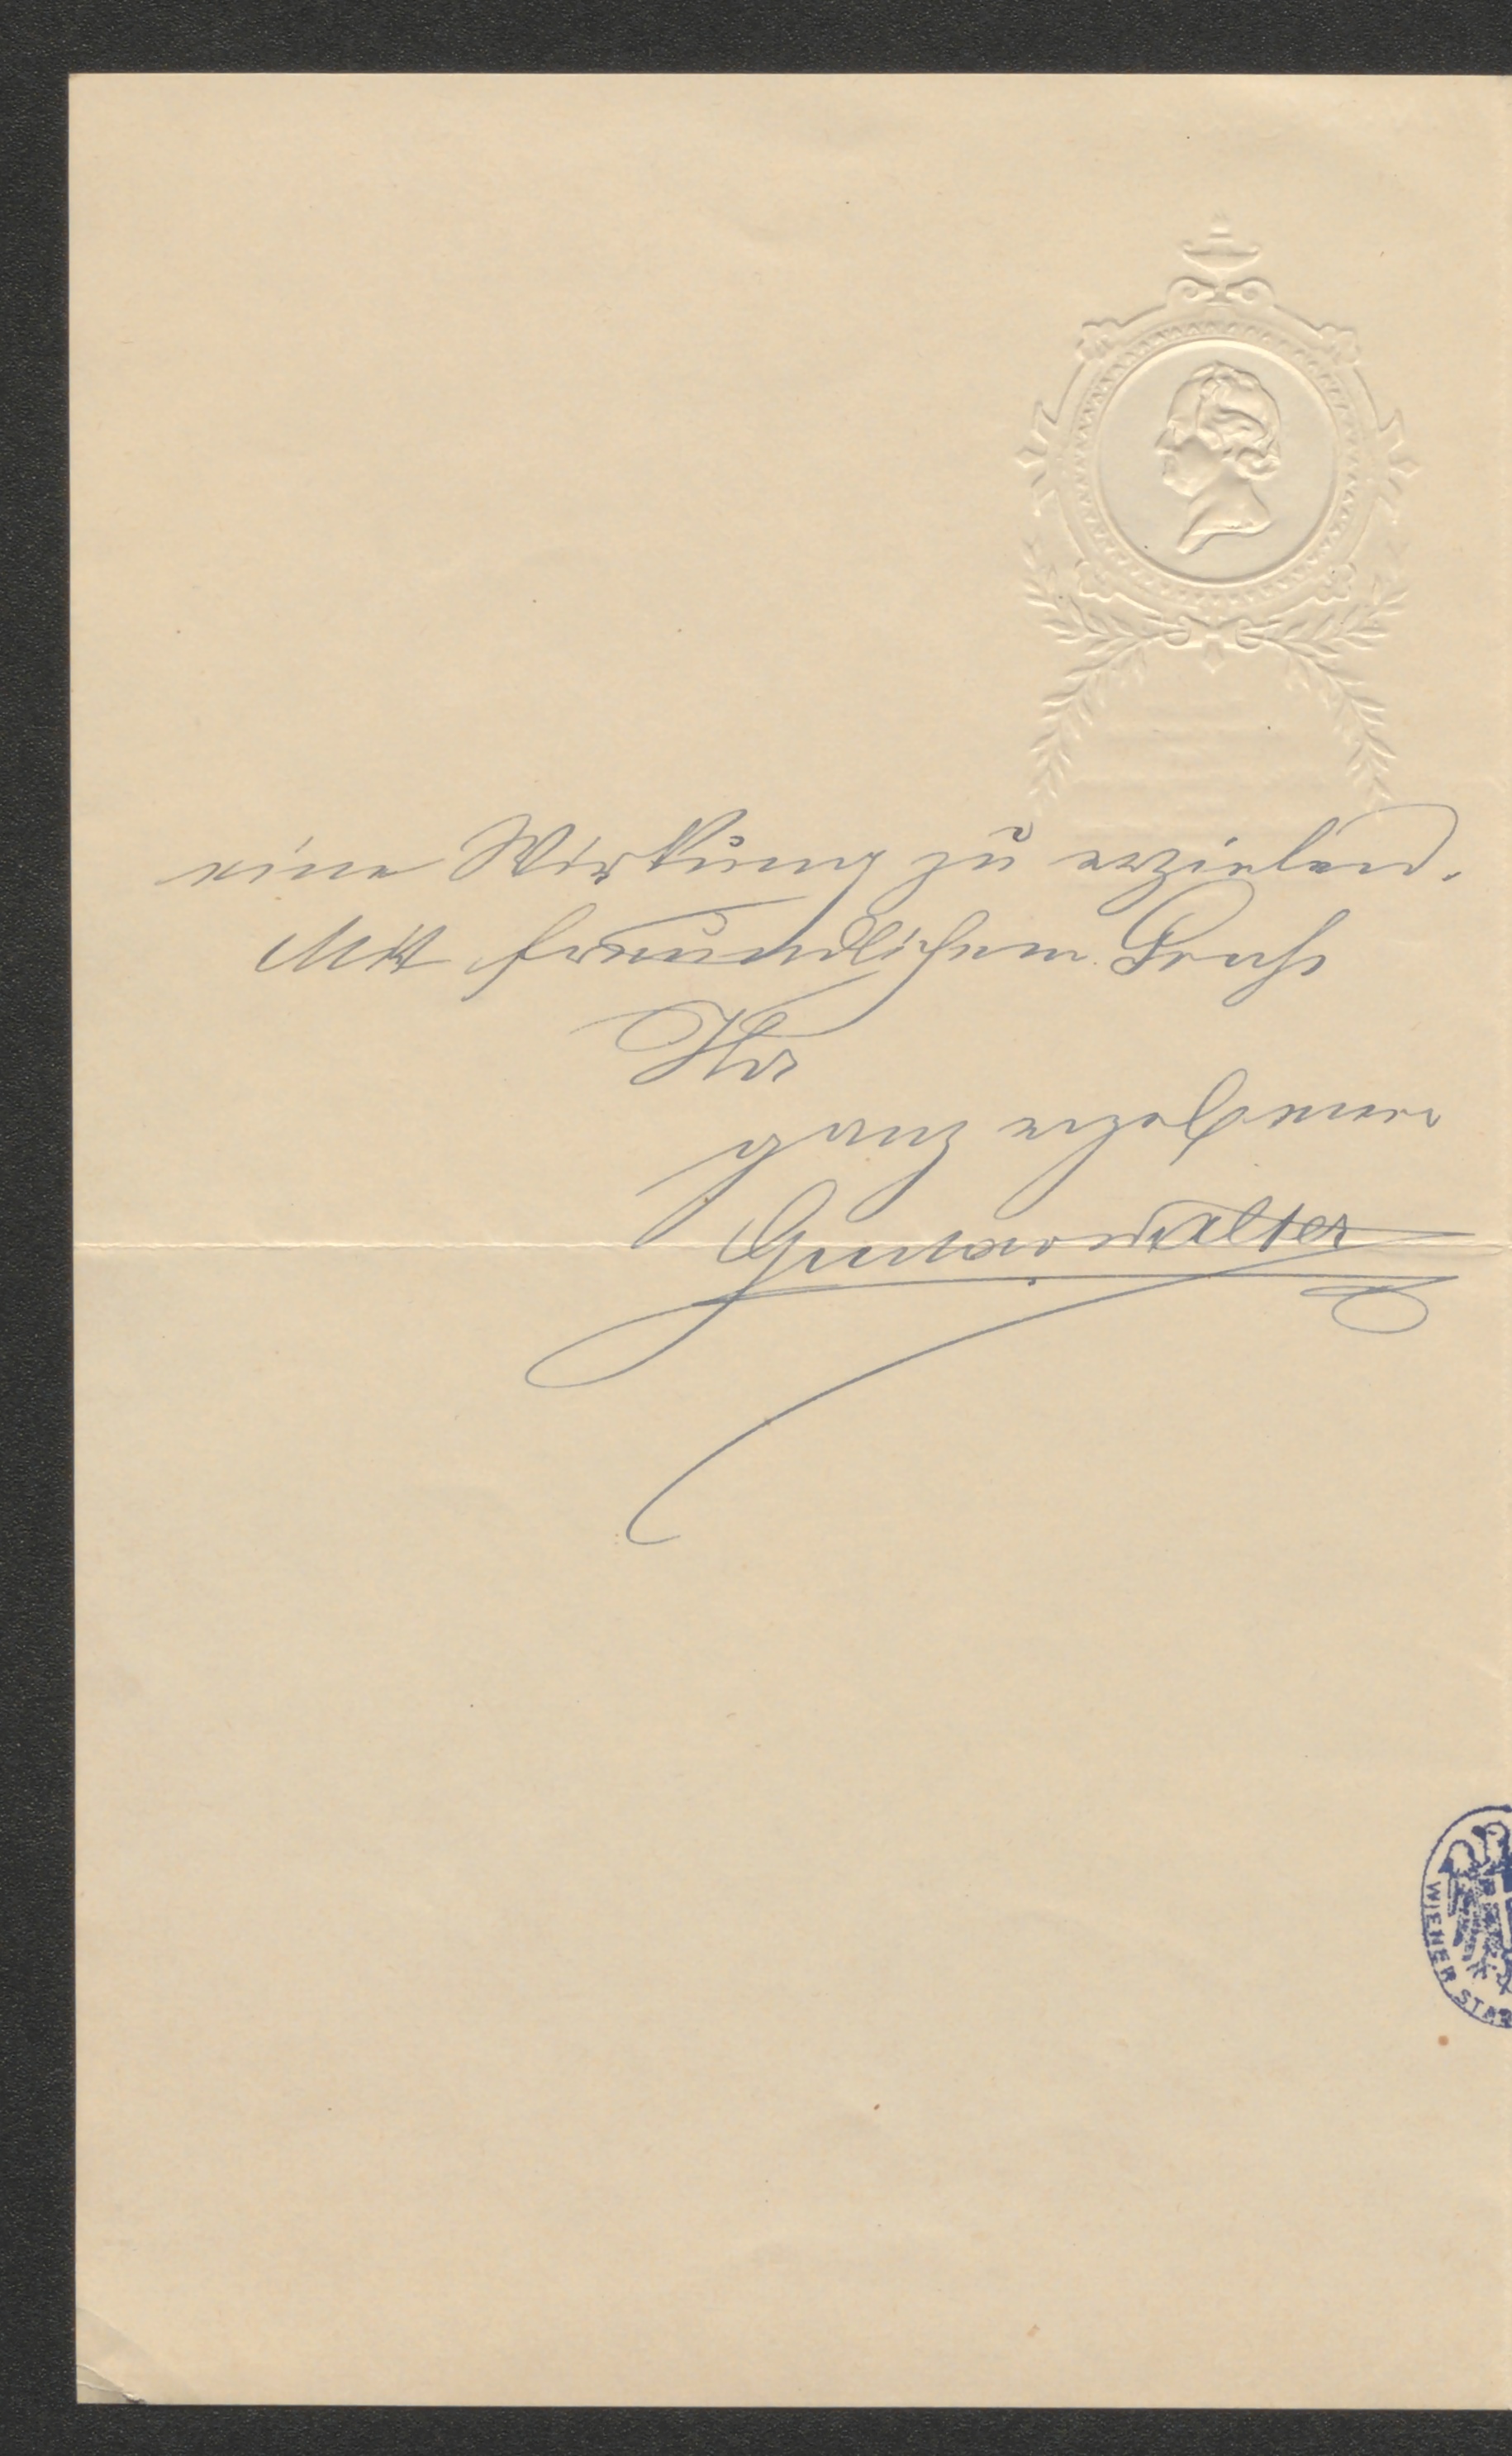 eine Wirkung zu erzielen.
Mit freundlichem Gruß
Ihr
ganz ergebener
Gustav Walter
WIENER STA